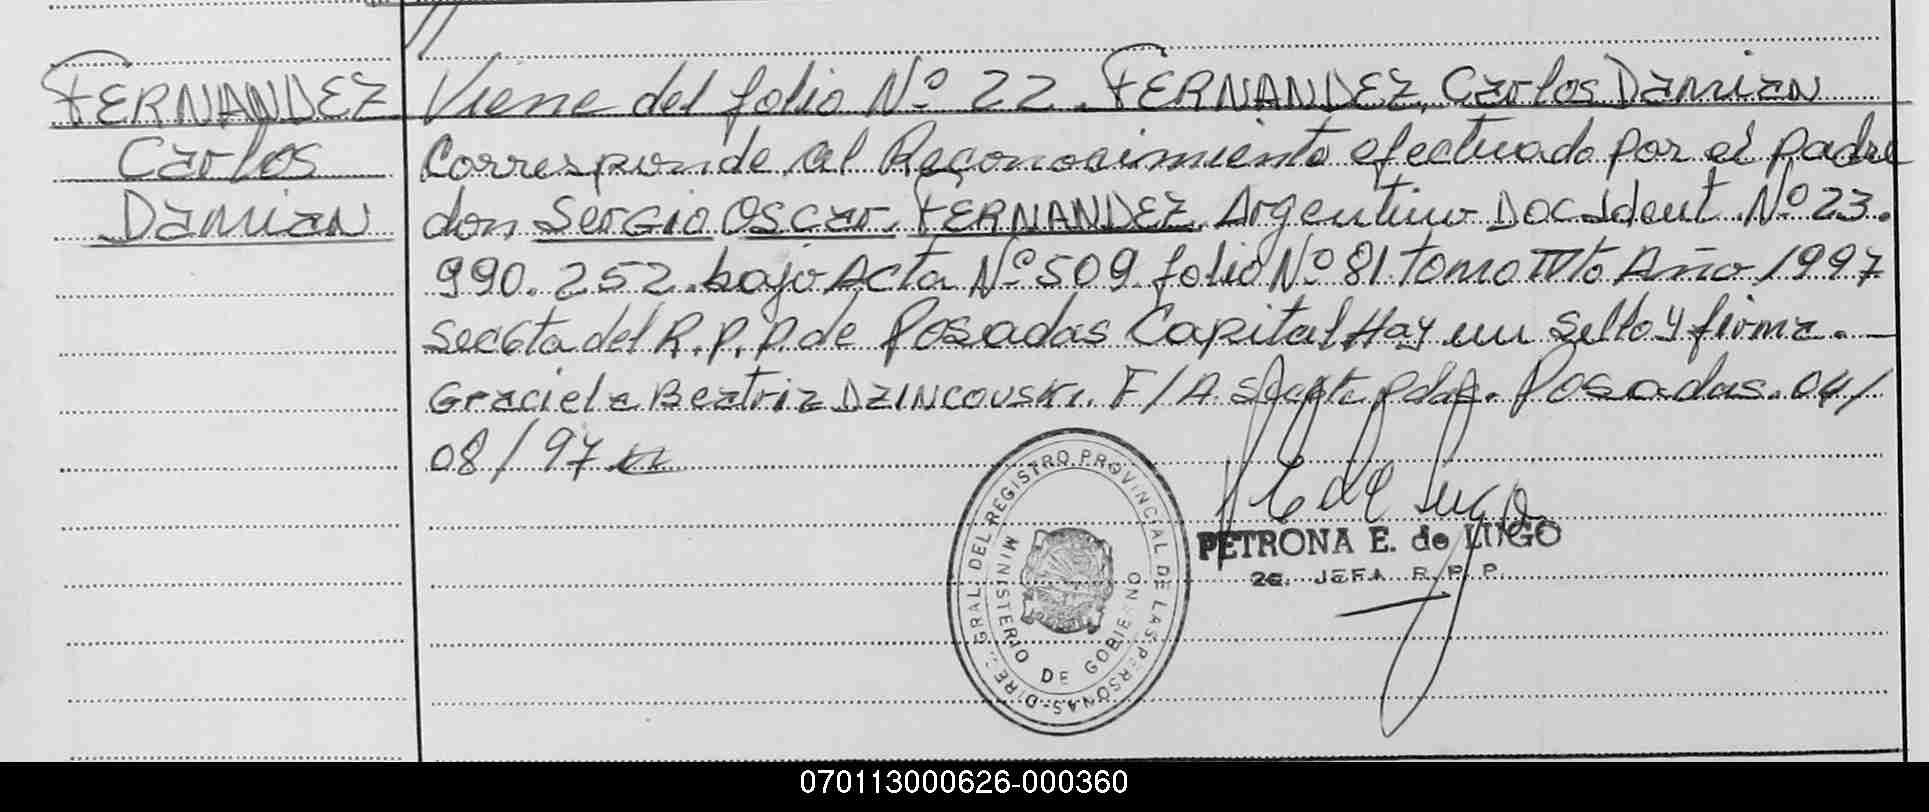 FERNANDEZ
Carlos
Damian
Viene del folio Nº 22. FERNANDEZ, Carlos Damian
Corresponde al Reconocimiento efectuado por el padre
don Sergio Oscar FERNANDEZ Argentino Doc. Ident. Nº 23.
990.252. bajo Acta Nº 509 folio Nº 81 tomo IVto Año 1997
Secc 6ta del R.P.P. de Posadas Capital Hay un sello y firma. —
Graciela Beatriz DZINCOVSKI. F/A. Posadas. 04/
08/97
DIREC. GRAL. DEL REGISTRO PROVINCIAL DE LAS PERSONAS
MINISTERIO DE GOBIERNO
PETRONA E. de LUGO
2a. JEFA R. P. P.
070113000626-000360